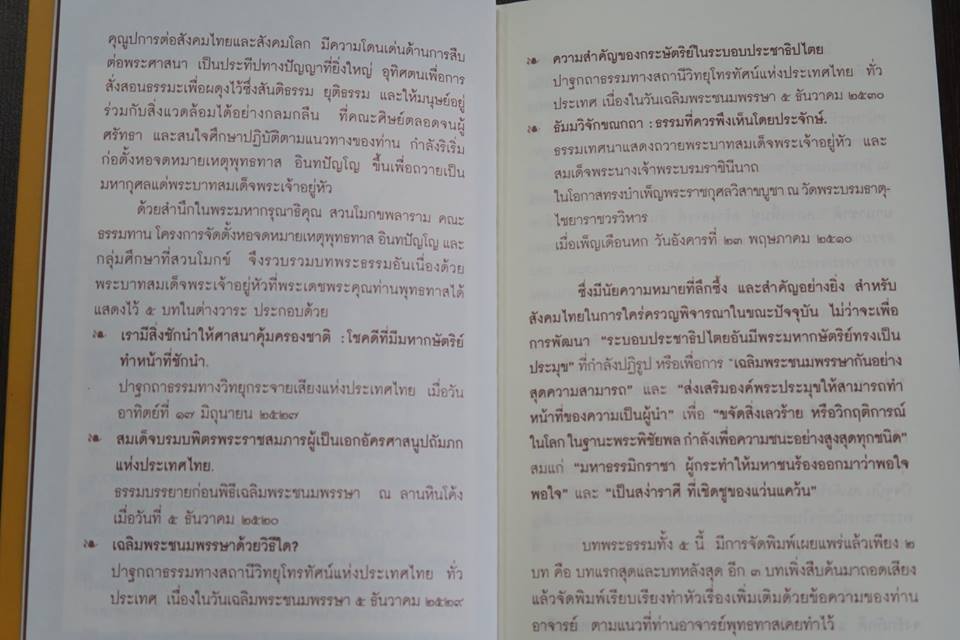 คุณูปการต่อสังคมไทยและสังคมโลก มีความโดนเด่นด้านการสืบ
ต่อพระศาสนา เป็นประทีปทางปัญญาที่ยิ่งใหญ่ อุทิศตนเพื่อการ
สั่งสอนธรรมะเพื่อผดุงไว้ซึ่งสันติธรรม ยุติธรรม และให้มนุษย์อยู่
ร่วมกับสิ่งแวดล้อมได้อย่างกลมกลืน ที่คณะศิษย์ตลอดจนผู้
ศรัทธา และสนใจศึกษาปฏิบัติตามแนวทางของท่าน กำลังริเริ่ม
ก่อตั้งหอจดหมายเหตุพุทธทาส อินทปัญโญ ขึ้นเพื่อถวายเป็น
มหากุศลแด่พระบาทสมเด็จพระเจ้าอยู่หัว
ด้วยสำนึกในพระมหากรุณาธิคุณ สวนโมกขพลาราม คณะ
ธรรมทาน โครงการจัดตั้งหอจดหมายเหตุพุทธทาส อินทปัญโญ และ
กลุ่มศึกษาที่สวนโมกข์ จึงรวบรวมบทพระธรรมอันเนื่องด้วย
พระบาทสมเด็จพระเจ้าอยู่หัวที่พระเดชพระคุณท่านพุทธทาสได้
แสดงไว้ ๕ บทในต่างวาระ ประกอบด้วย
เรามีสิ่งชักนำให้ศาสนาคุ้มครองชาติ : โชคดีที่มีมหากษัตริย์
ทำหน้าที่ชักนำ.
ปาฐกถาธรรมทางวิทยุกระจายเสียงแห่งประเทศไทย เมื่อวัน
อาทิตย์ที่ ๑๗ มิถุนายน ๒๕๒๗
สมเด็จบรมบพิตรพระราชสมภารผู้เป็นเอกอัครศาสนูปถัมภก
แห่งประเทศไทย.
ธรรมบรรยายก่อนพิธีเฉลิมพระชนมพรรษา ณ ลานหินโค้ง
เมื่อวันที่ ๕ ธันวาคม ๒๕๒๐
เฉลิมพระชนมพรรษาด้วยวิธีใด?
ปาฐกถาธรรมทางสถานีวิทยุโทรทัศน์แห่งประเทศไทย ทั่ว
ประเทศ เนื่องในวันเฉลิมพระชนมพรรษา ๕ ธันวาคม ๒๕๒๙
ความสำคัญของกระษัตริย์ในระบอบประชาธิปไตย
ปาฐกถาธรรมทางสถานีวิทยุโทรทัศน์แห่งประเทศไทย ทั่ว
ประเทศ เนื่องในวันเฉลิมพระชนมพรรษา ๕ ธันวาคม ๒๕๓๐
ธัมมวิจักขณกถา : ธรรมที่ควรพึงเห็นโดยประจักษ์.
ธรรมเทศนาแสดงถวายพระบาทสมเด็จพระเจ้าอยู่หัว และ
สมเด็จพระนางเจ้าพระบรมราชินีนาถ
ในโอกาสทรงบำเพ็ญพระราชกุศลวิสาขบูชา ณ วัดพระบรมธาตุ-
ไชยาราชวรวิหาร
เมื่อเพ็ญเดือนหก วันอังคารที่ ๒๓ พฤษภาคม ๒๕๑๐
ซึ่งมีนัยความหมายที่ลึกซึ้ง และสำคัญอย่างยิ่ง สำหรับ
สังคมไทยในการใคร่ครวญพิจารณาในขณะปัจจุบัน ไม่ว่าจะเพื่อ
การพัฒนา "ระบอบประชาธิปไตยอันมีพระมหากษัตริย์ทรงเป็น
ประมุข" ที่กำลังปฏิรูป หรือเพื่อการ "เฉลิมพระชนมพรรษากันอย่าง
สุดความสามารถ" และ "ส่งเสริมองค์พระประมุขให้สามารถทำ
หน้าที่ของความเป็นผู้นำ" เพื่อ "ขจัดสิ่งเลวร้าย หรือวิกฤติการณ์
ในโลก ในฐานะพระพิชัยพล กำลังเพื่อความชนะอย่างสูงสุดทุกชนิด"
สมแก่ "มหาธรรมิกราชา ผู้กระทำให้มหาชนร้องออกมาว่าพอใจ
พอใจ" และ "เป็นสง่าราศี ที่เชิดชูของแว่นแคว้น"
บทพระธรรมทั้ง ๕ นี้ มีการจัดพิมพ์เผยแพร่แล้วเพียง ๒
บท คือ บทแรกสุดและบทหลังสุด อีก ๓ บทเพิ่งสืบค้นมาถอดเสียง
แล้วจัดพิมพ์เรียบเรียงทำหัวเรื่องเพิ่มเติมด้วยข้อความของท่าน
อาจารย์ ตามแนวที่ท่านอาจารย์พุทธทาสเคยทำไว้